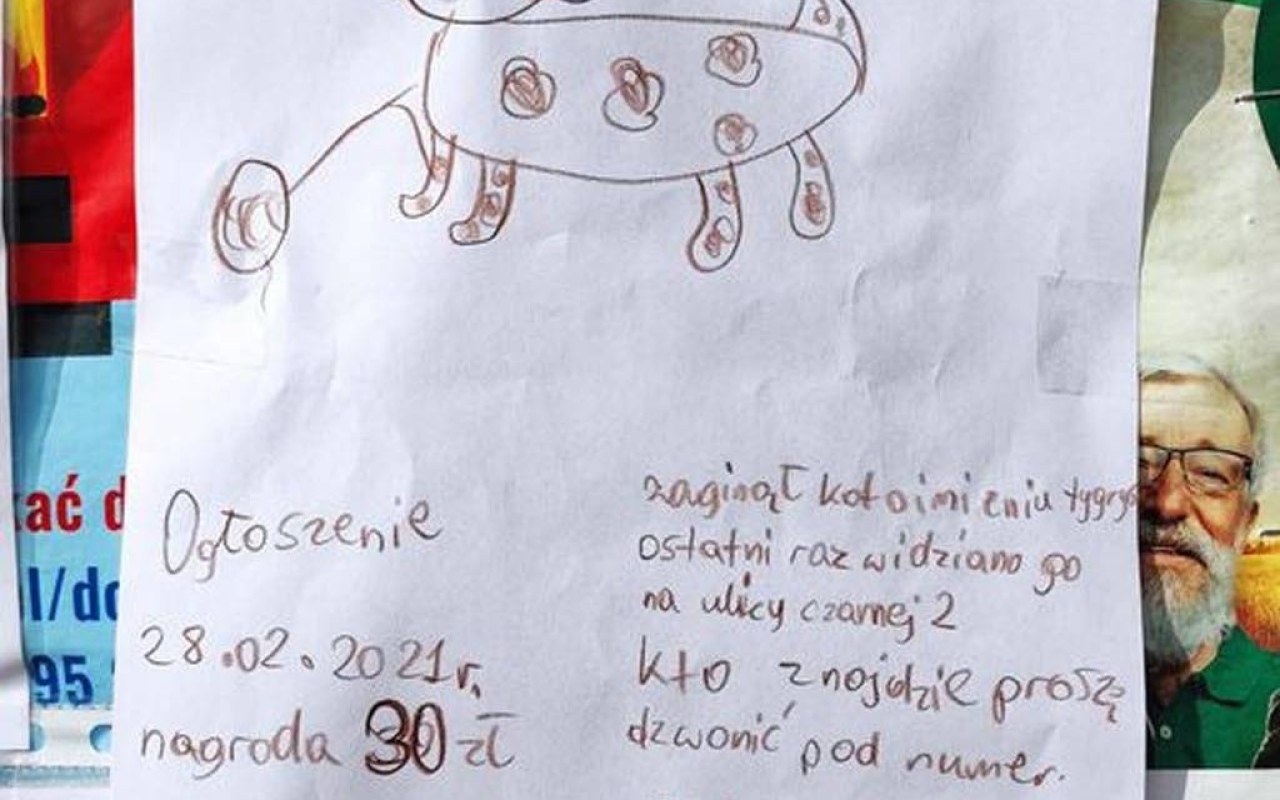 kać d
l/do
95
Ogłoszenie
28.02.2021r.
nagroda 30 zł
zaginął kot o imieniu tygrys
ostatni raz widziano go
na ulicy czarnej 2
kto znojdzie proszę
dzwonić pod numer.